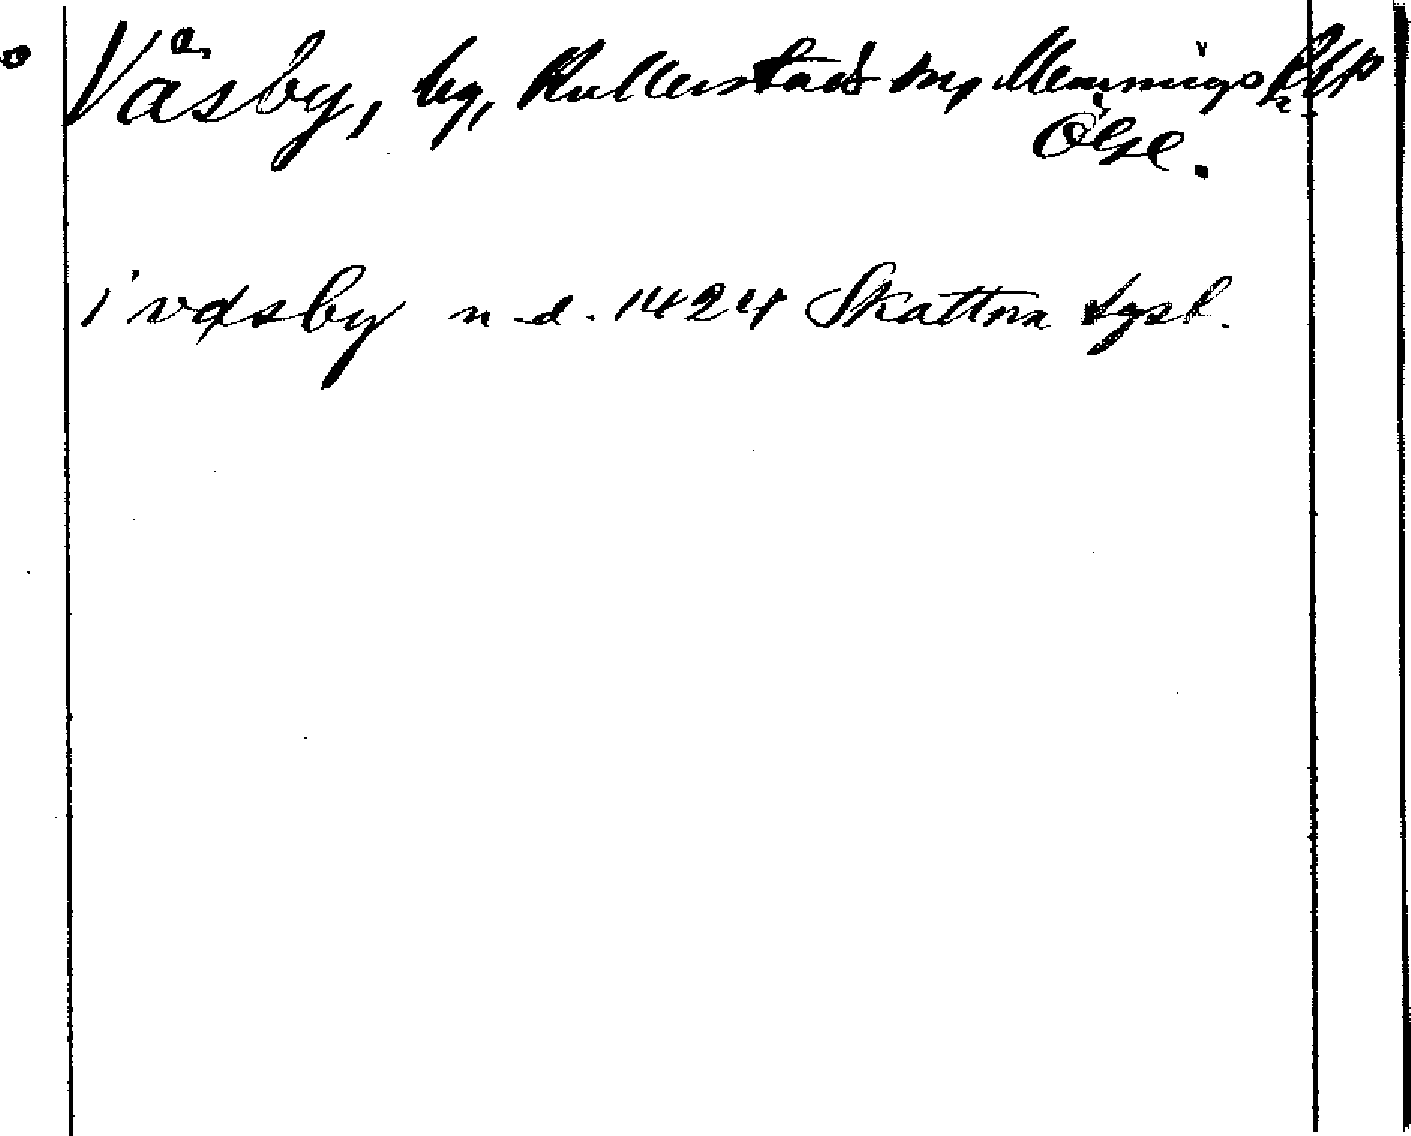 Väsby, by, Kullerstads sn, Memmings
Ögl.
i væsby n. d. 1424 Skattna Sgsb.